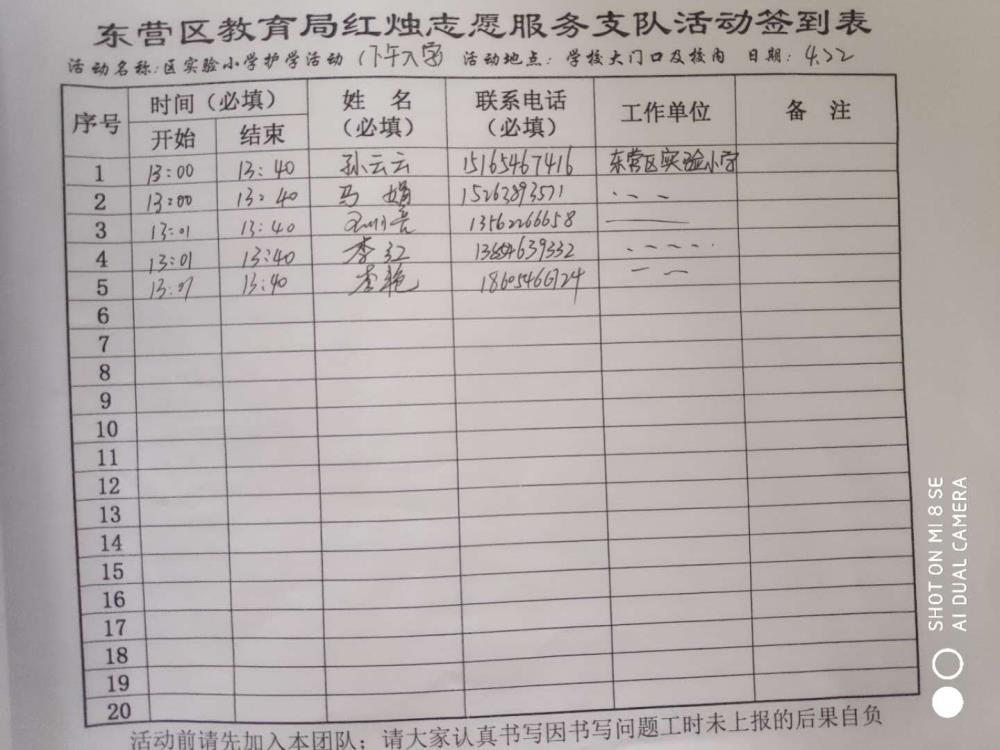 东营区教育局红烛志愿服务支队活动签到表
活动名称:区实验小学护学活动(下午入学) 活动地点:学校大门口及校内 日期:4.22
序号 时间(必填) 姓名(必填) 联系电话(必填) 工作单位 备注
开始 结束
1 13:00 13:40 孙云云 15165467416 东营区实验小学
2 13:00 13:40 马娟 15263893571
3 13:01 13:40 13562266658
4 13:01 13:40 李红
5 13:07 13:40 李艳 18605466724
6
7
8
9
10
11
12
13
14
15
16
17
18
19
20
活动前请先加入本团队;请大家认真书写因书写问题工时未上报的后果自负
SHOT ON MI 8 SE
AI DUAL CAMERA